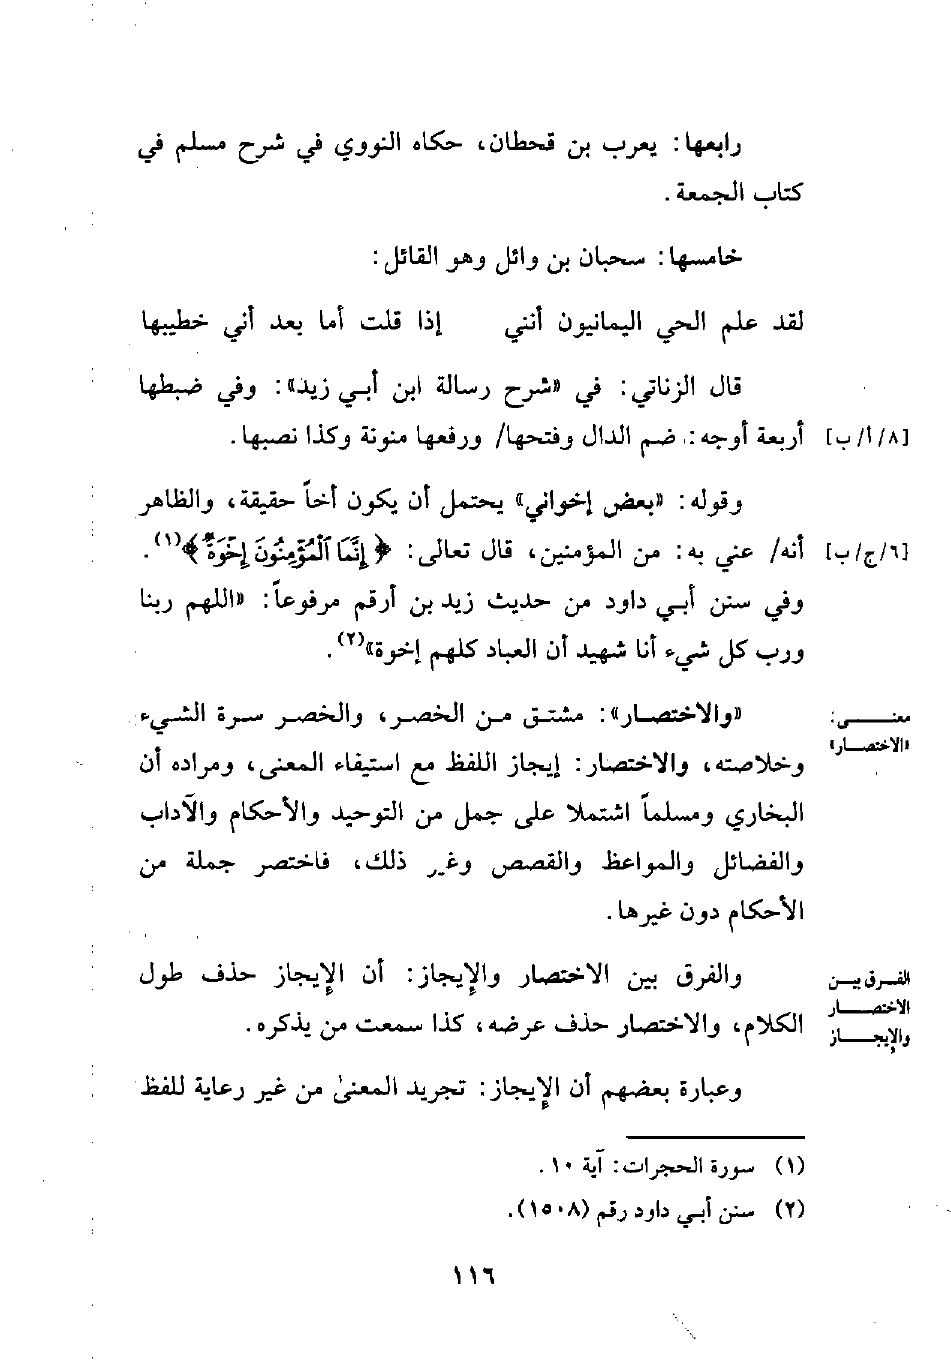 رابعها: يعرب بن قحطان، حكاه النووي في شرح مسلم في
كتاب الجمعة.
خامسها: سحبان بن وائل وهو القائل:
لقد علم الحي اليمانيون أنني إذا قلت أما بعد أني خطيبها
قال الزناتي: في «شرح رسالة ابن أبي زيد»: وفي ضبطها
أربعة أوجه: ضم الدال وفتحها/ ورفعها منونة وكذا نصبها. [٨/أ/ب]
وقوله: «بعض إخواني» يحتمل أن يكون أخاً حقيقة، والظاهر
أنه/ عني به: من المؤمنين، قال تعالى: ﴿إِنَّمَا ٱلْمُؤْمِنُونَ إِخْوَةٌ﴾(١). [٦/ج/ب]
وفي سنن أبي داود من حديث زيد بن أرقم مرفوعاً: «اللهم ربنا
ورب كل شيء أنا شهيد أن العباد كلهم إخوة»(٢).
«والاختصار»: مشتق من الخصر، والخصر سرة الشيء
وخلاصته، والاختصار: إيجاز اللفظ مع استيفاء المعنى، ومراده أن
البخاري ومسلماً اشتملا على جمل من التوحيد والأحكام والآداب
والفضائل والمواعظ والقصص وغير ذلك، فاختصر جملة من
الأحكام دون غيرها.
معنى:
«الاختصار»
والفرق بين الاختصار والإيجاز: أن الإيجاز حذف طول
الكلام، والاختصار حذف عرضه، كذا سمعت من يذكره.
الفرق بين
الاختصار
والإيجاز
وعبارة بعضهم أن الإيجاز: تجريد المعنىٰ من غير رعاية للفظ
(١) سورة الحجرات: آية ١٠.
(٢) سنن أبي داود رقم (١٥٠٨).
١١٦